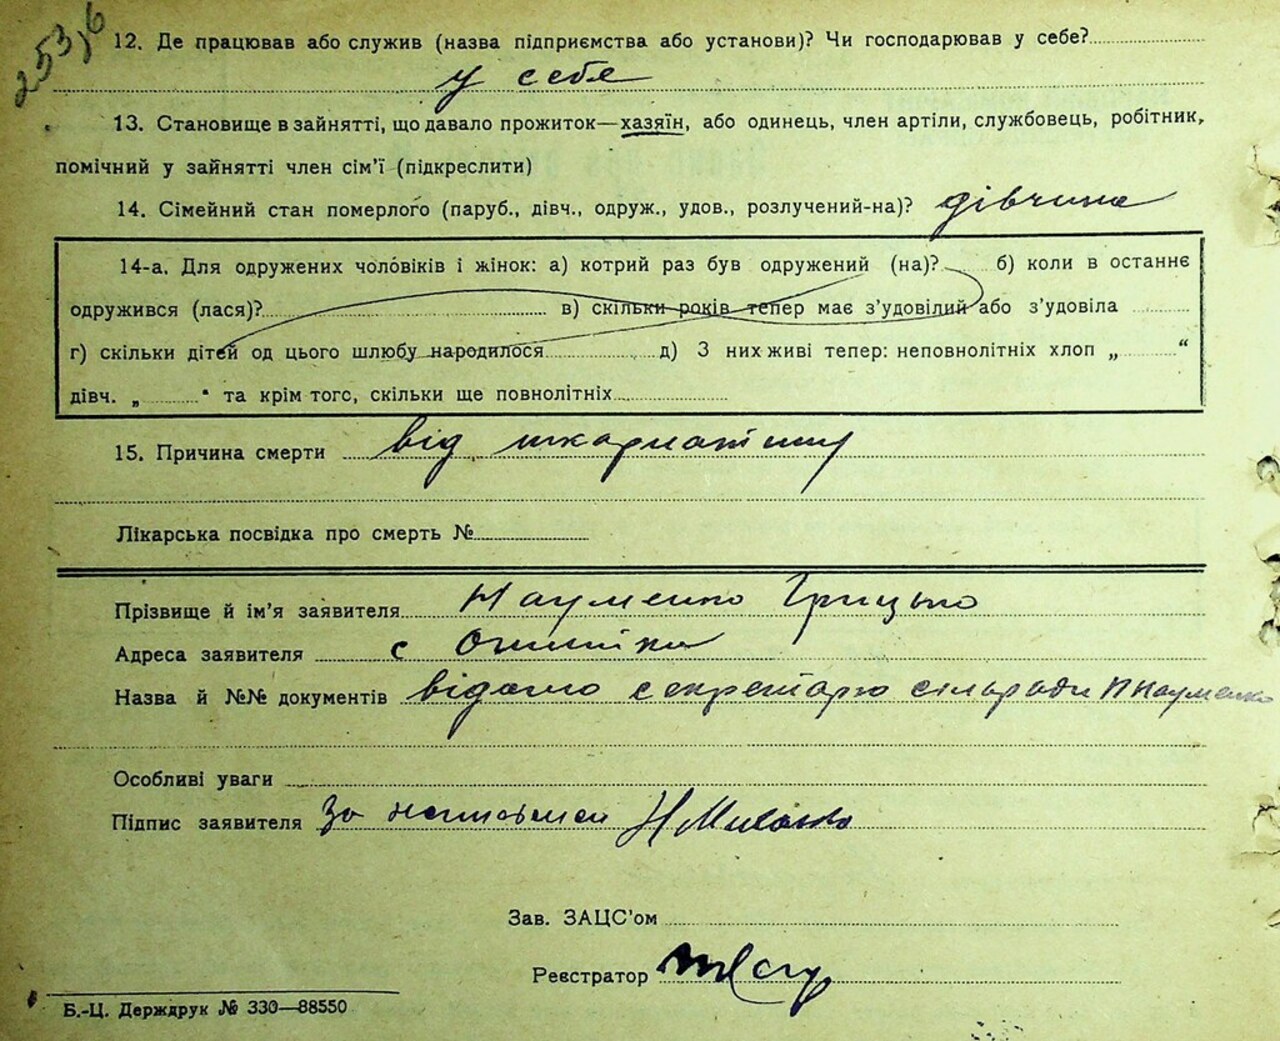 253,6
12. Де працював або служив (назва підприємства або установи)? Чи господарював у себе?
у себе
13. Становище в зайнятті, що давало прожиток—хазяїн, або одинець, член артіли, службовець, робітник,
помічний у зайнятті член сім'ї (підкреслити)
14. Сімейний стан померлого (паруб., дівч., одруж., удов., розлучений-на)? дівчина
14-а. Для одружених чоловіків і жінок: а) котрий раз був одружений (на)? б) коли в останнє
одружився (лася)? в) скільки років тепер має з'удовілий або з'удовіла
г) скільки дітей од цього шлюбу народилося д) З них живі тепер: неповнолітніх хлоп „ “
дівч. „ “ та крім того, скільки ще повнолітніх
15. Причина смерти від шкарлатіни
Лікарська посвідка про смерть №
Прізвище й ім'я заявителя Науменко Грицько
Адреса заявителя с
Назва й №№ документів відомо секретарю сільради Науменко
Особливі уваги
Підпис заявителя За
Зав. ЗАЦС'ом
Реєстратор
Б.-Ц. Держдрук № 330—88550